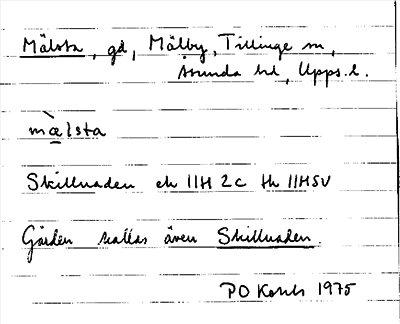 Mälsta, gd, Mälby, Tillinge sn,
Åsunda hd, Upps. l.
mæ̀lsta
Skillnaden ek 11H 2c fk 11HSV
Gården kallas även Skillnaden.
PO 1975